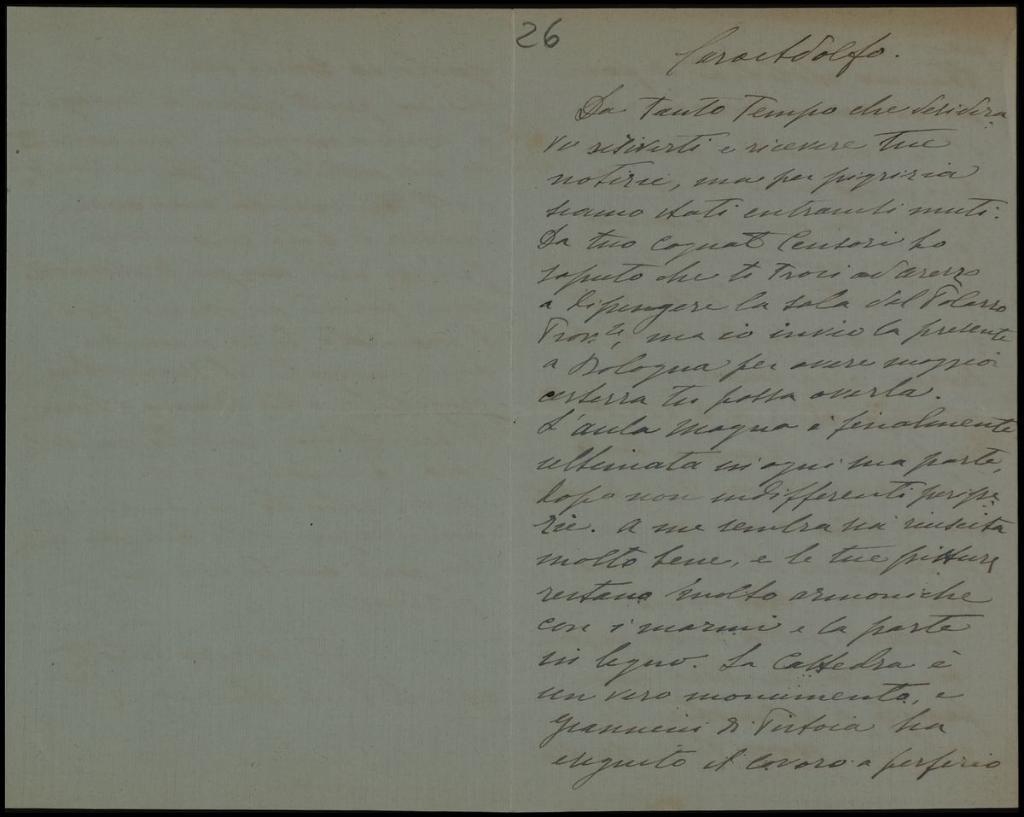 26
Caro Adolfo.
Da tanto tempo che desidera
vo scriverti e ricevere tue
notizie, ma per pigrizia
siamo stati entrambi muti.
Da tuo cognato Censori ho
saputo che ti trovi ad Arezzo
a dipingere la sala del Palazzo
Prov.le, ma io invio la presente
a Bologna per avere maggior
certezza tu possa averla.
L'aula magna è finalmente
ultimata in ogni sua parte,
dopo non indifferenti peripe
zie. A me sembra sia riuscita
molto bene, e le tue pitture
restano molto armoniche
con i marmi e la parte
in legno. La Cattedra è
un vero monumento, e
Giannini di Pistoia ha
eseguito il lavoro a perfezio